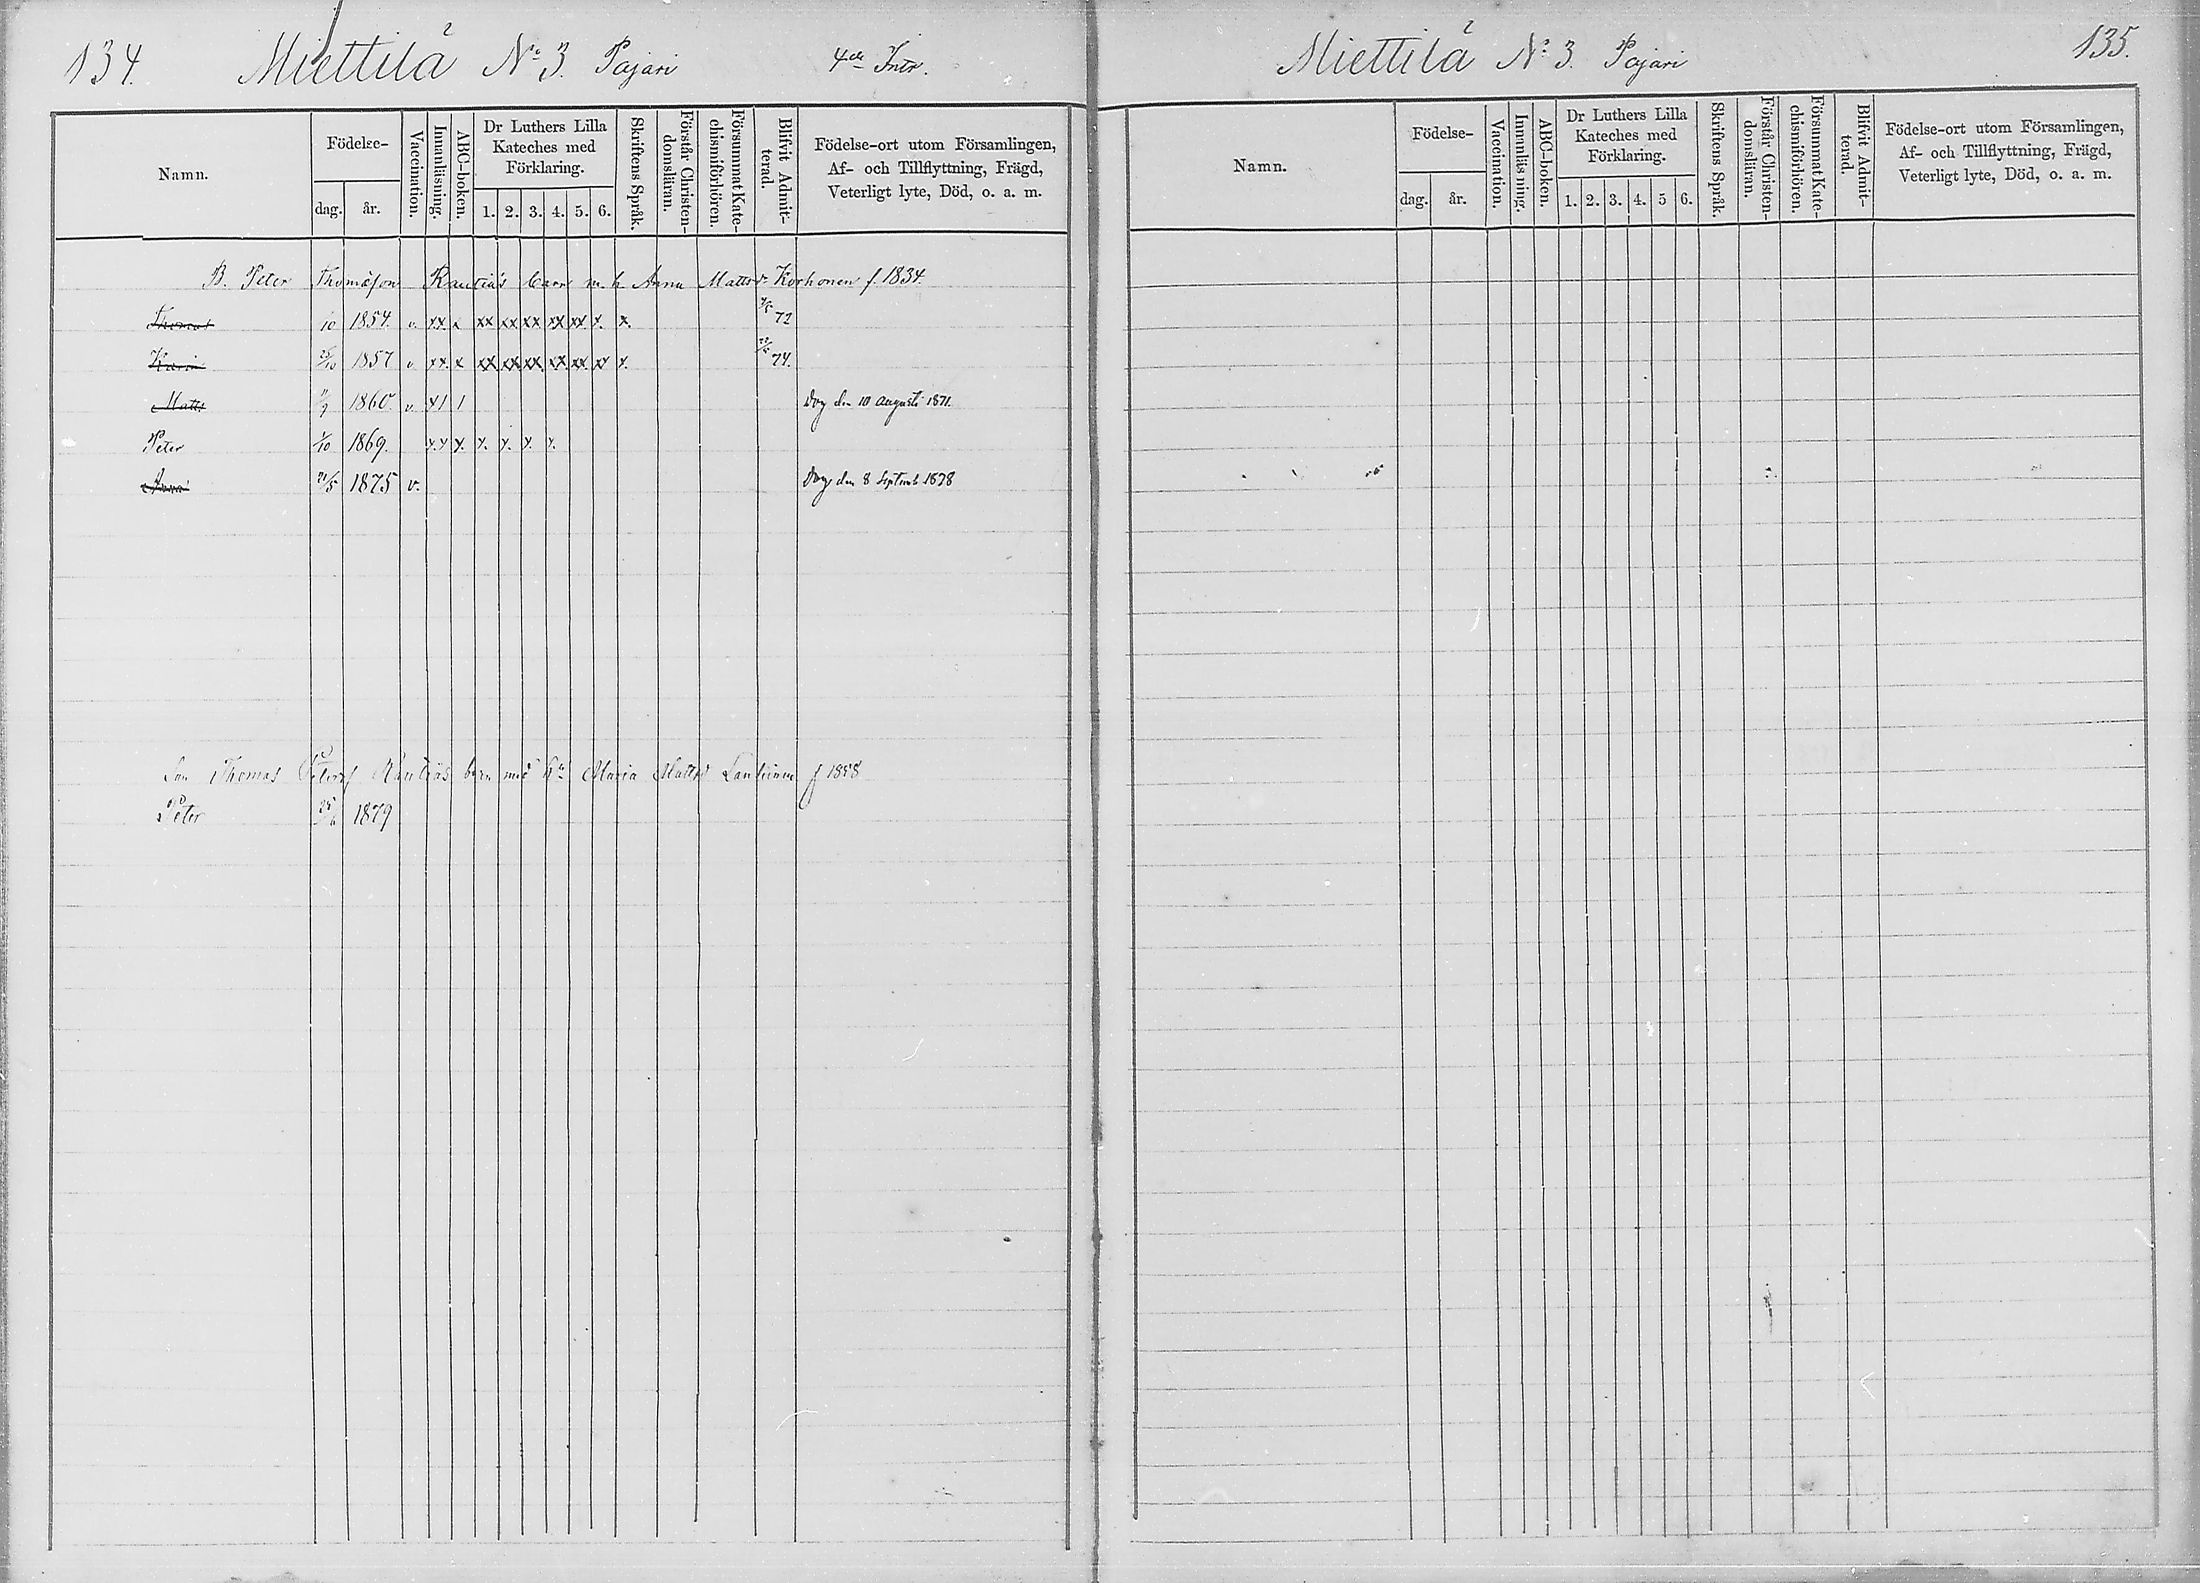 134. Miettilä No 3. Pajari 4de Intr.
Namn. Födelse- dag. år. Vaccination. Innanläsning. ABC-boken. Dr Luthers Lilla Kateches med Förklaring. 1. 2. 3. 4. 5. 6. Skriftens Språk. Förstår Christendomsläran. Försummat Katechismiförhören. Blifvit Admitterad. Födelse-ort utom Församlingen, Af- och Tillflyttning, Frägd, Veterligt lyte, Död, o. a. m.
B. Peter Thomasson Rautias barn m. h. Anna Mattsdr Korhonen f. 1834.
Thomas /10 1854. v. xx x xx xx xx xx xx x. x. 72
Karin 25/10 1857 v. xx. x xx xx xx xx xx xx x. 74.
Matts 11/9 1860. v. x1 1 Dog den 10 Augusti 1871.
Peter 1/10 1869. x.x x. x. x. x. x.
Anna 21/5 1875 v. Dog den 8 Septemb 1878
Son Thomas Petersf Rautias barn med hu Maria Mattsd f 1858
Peter 1879
Miettilä No 3. Pajari 135.
Namn. Födelse- dag. år. Vaccination. Innanläsning. ABC-boken. Dr Luthers Lilla Kateches med Förklaring. 1. 2. 3. 4. 5 6. Skriftens Språk. Förstår Christendomsläran. Försummat Katechismiförhören. Blifvit Admitterad. Födelse-ort utom Församlingen, Af- och Tillflyttning, Frägd, Veterligt lyte, Död, o. a. m.